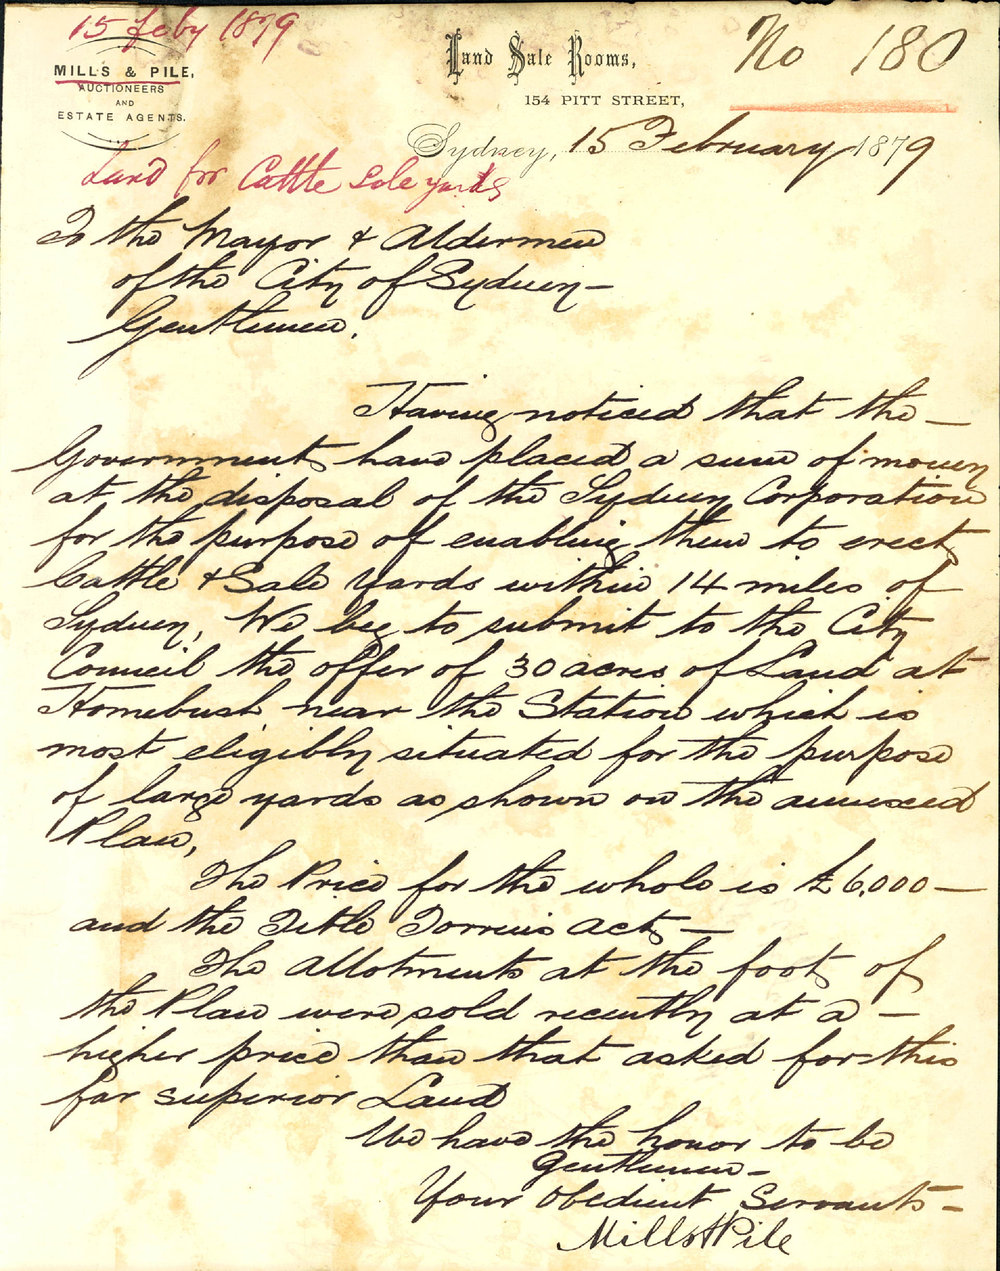 15 Feby 1879
MILLS & PILE,
AUCTIONEERS
AND
ESTATE AGENTS.
Land Sale Rooms,
154 PITT STREET,
No 180
Sydney, 15 February 1879
Land for Cattle Sale yards
To the Mayor & Aldermen
of the City of Sydney—
Gentlemen,
Having noticed that the—
Government have placed a sum of money
at the disposal of the Sydney Corporation
for the purpose of enabling them to erect
Cattle & Sale Yards within 14 miles of
Sydney, We beg to submit to the City
Council the offer of 30 acres of Land at
Homebush near the Station which is
most eligibly situated for the purpose
of large yards as shown on the annexed
Plan,
The Price for the whole is £6,000—
and the Title Torrens Act—
The Allotments at the foot of
the Plan were sold recently at a—
higher price than that asked for this
far superior Land
We have the honor to be
Gentlemen—
Your Obedient Servants—
Mills & Pile